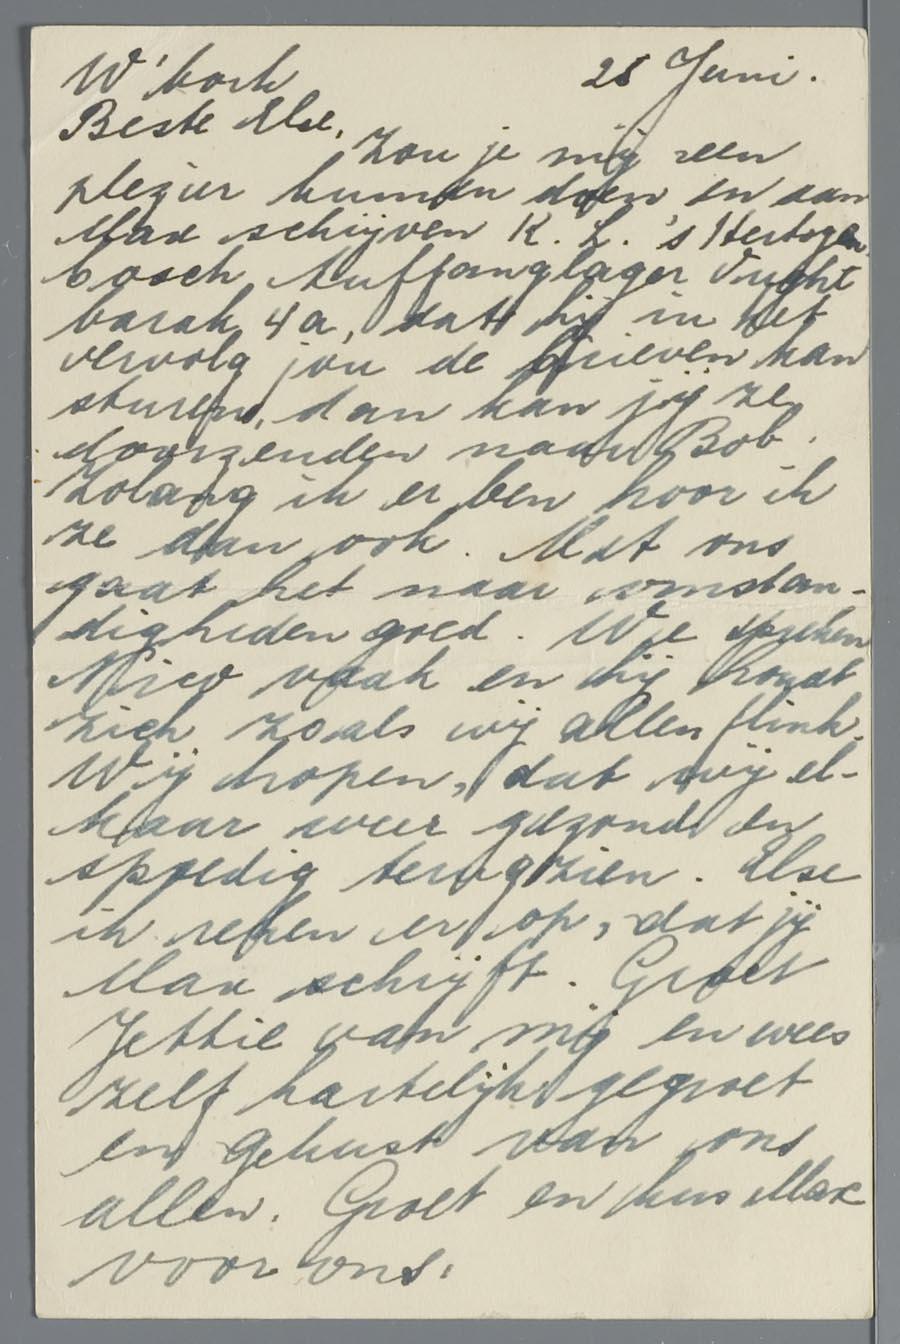 W'bork 28 Juni.
Beste Else,
Zou je mij een
plezier kunnen doen en aan
Max schijven K. L. 's Hertogen
bosch Auffanglager Vught
barak 4a, dat hij in het
vervolg jou de brieven kan
sturen, dan kan jij ze
doorzenden naar Bob.
Zolang ik er ben hoor ik
ze dan ook. Met ons
gaat het naar omstan-
digheden goed. We spreken
Nico vaak en hij houdt
zich zoals wij allen flink.
Wij hopen, dat wij el-
kaar weer gezond en
spoedig terugzien. Else
ik reken er op, dat jij
Max schrijft. Groet
Jettie van mij en wees
zelf hartelijk gegroet
en gekust van ons
allen. Groet en kus Max
voor ons.